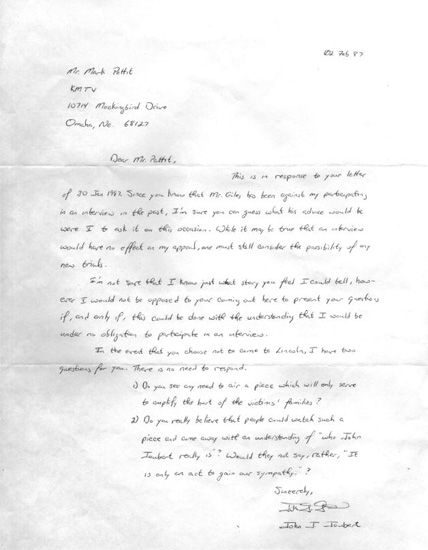 02 Feb 87
Mr. Mark Pettit
KMTV
10714 Mockingbird Drive
Omaha, Ne. 68127
Dear Mr. Pettit,
This is in response to your letter
of 30 Jan 1987. Since you know that Mr. Giles has been against my participating
in an interview in the past, I'm sure you can guess what his advice would be
were I to ask it on this occasion. While it may be true that an interview
would have no effect on my appeal, one must still consider the possibility of any
new trials.
I'm not sure that I know just what story you feel I could tell, how-
ever I would not be opposed to your coming out here to present your questions
if, and only if, this could be done with the understanding that I would be
under no obligation to participate in an interview.
In the event that you choose not to come to Lincoln, I have two
questions for you. There is no need to respond.
1) Do you see any need to air a piece which will only serve
to amplify the hurt of the victims' families?
2) Do you really believe that people could watch such a
piece and come away with an understanding of "who John
Joubert really is"? Would they not say, rather, "It
is only an act to gain our sympathy."?
Sincerely,
John J Joubert